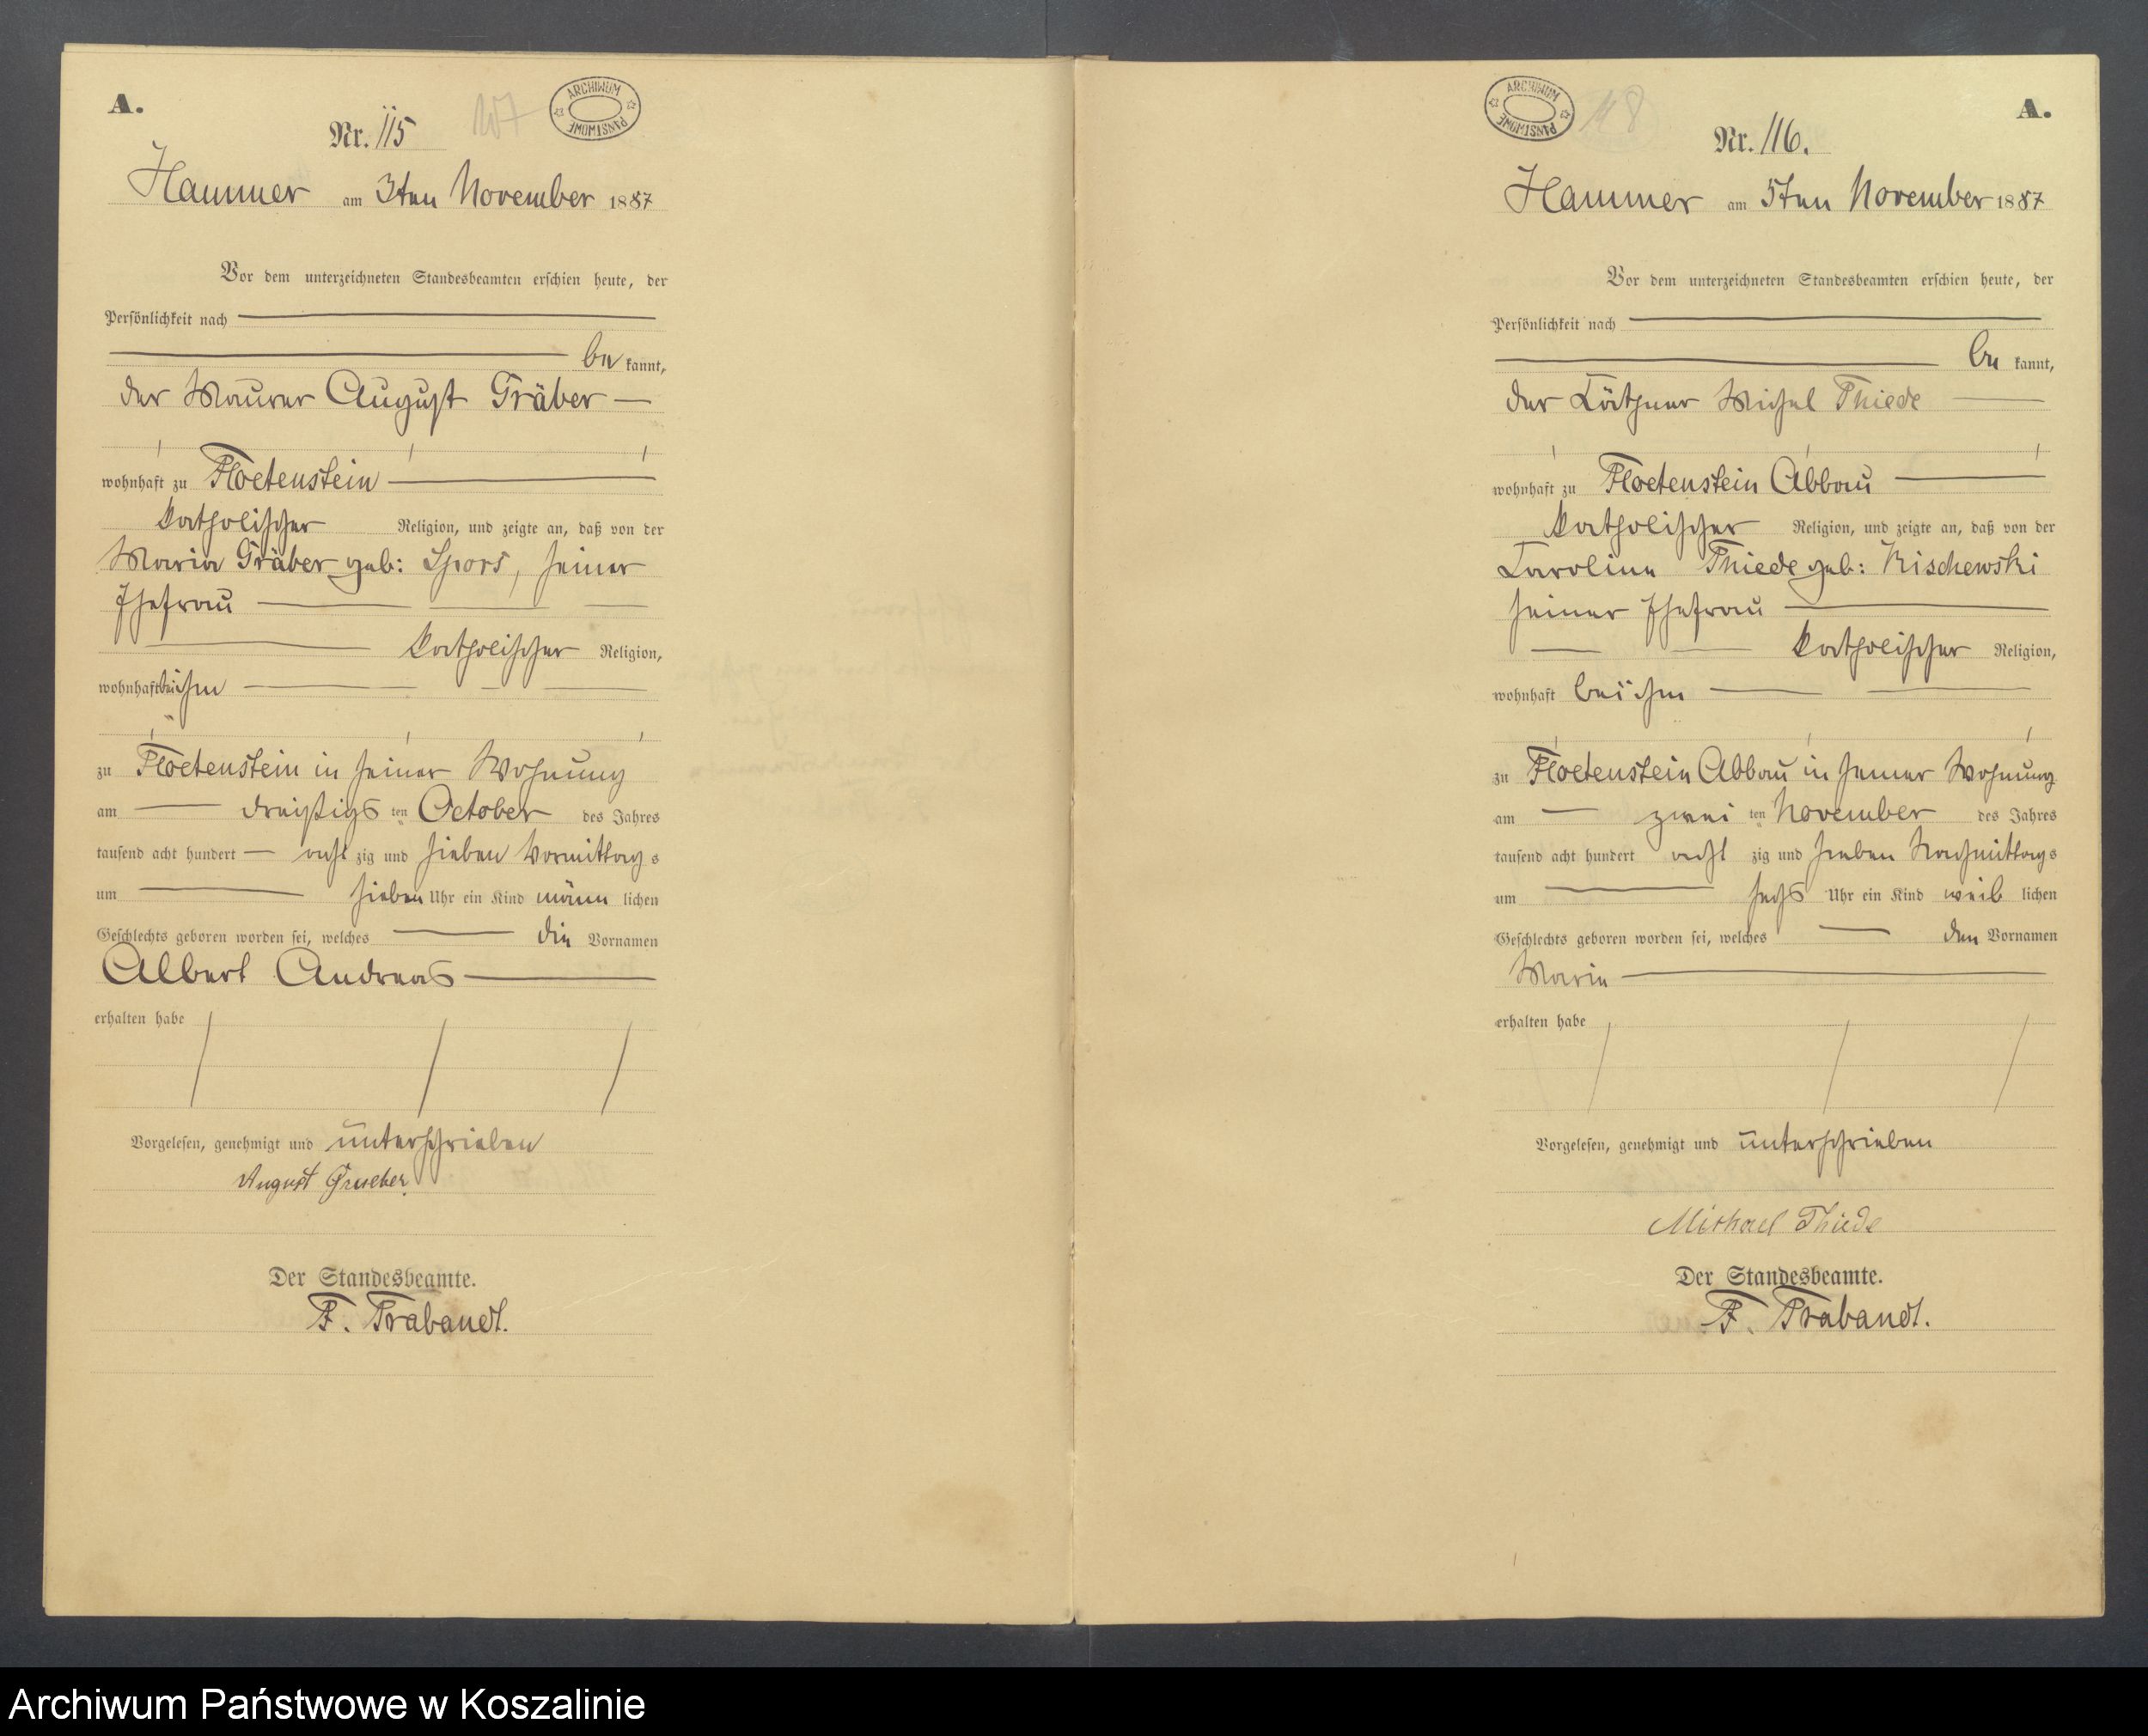 A.
Nr. 115
ARCHIWUM PAŃSTWOWE
Hammer am 3ten November 1887
Vor dem unterzeichneten Standesbeamten erschien heute, der
Persönlichkeit nach
be kannt,
der Maurer August Gräber
wohnhaft zu Floetenstein
katholischer Religion, und zeigte an, daß von der
Maria Gräber geb: Spors, seiner
Ehefrau
katholischer Religion,
wohnhaft bei ihm
zu Floetenstein in seiner Wohnung
am dreißigs ten October des Jahres
tausend acht hundert acht zig und sieben Vormittag s
um sieben Uhr ein Kind männ lichen
Geschlechts geboren worden sei, welches die Vornamen
Albert Andreas
erhalten habe
Vorgelesen, genehmigt und unterschrieben
August Graeber
Der Standesbeamte.
F. Trabandt.
ARCHIWUM PAŃSTWOWE
118
A.
Nr. 116.
Hammer am 5ten November 1887
Vor dem unterzeichneten Standesbeamten erschien heute, der
Persönlichkeit nach
be kannt,
der Käthner Michel Thiede
wohnhaft zu Floetenstein Abbau
katholischer Religion, und zeigte an, daß von der
Caroline Thiede geb: Rischewski
seiner Ehefrau
katholischer Religion,
wohnhaft bei ihm
zu Floetenstein Abbau in seiner Wohnung
am zwei ten November des Jahres
tausend acht hundert acht zig und sieben Nachmittag s
um sechs Uhr ein Kind weib lichen
Geschlechts geboren worden sei, welches den Vornamen
Marie
erhalten habe
Vorgelesen, genehmigt und unterschrieben
Michael Thiede
Der Standesbeamte.
F. Trabandt.
Archiwum Państwowe w Koszalinie